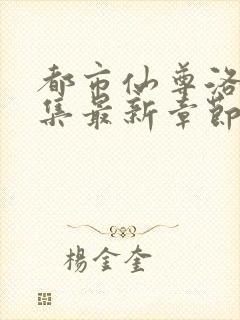 都市仙尊洛
集最新章節
楊金奎